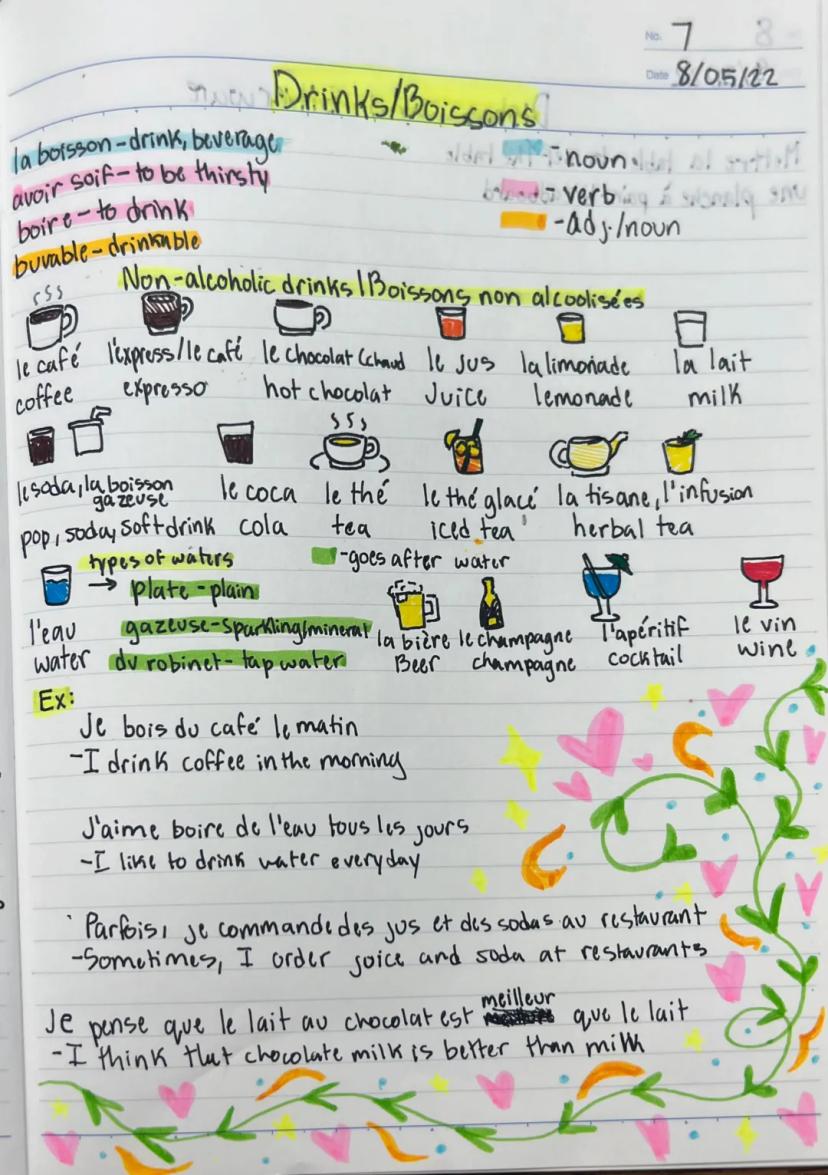 No. 7
Date 8/05/22
Drinks/Boissons
la boisson-drink, beverage
avoir soif-to be thirsty
boire-to drink
buvable-drinkable
-noun
-verb
-adj./noun
Non-alcoholic drinks/Boissons non alcoolisées
le café l'express/le café le chocolat (chaud le jus la limonade la lait
coffee expresso hot chocolat Juice lemonade milk
le soda, la boisson gazeuse le coca le thé le thé glacé la tisane, l'infusion
pop, soda, soft drink cola tea iced tea herbal tea
types of waters
-goes after water
→ plate-plain
gazeuse-sparkling/mineral
du robinet-tap water
l'eau
water
la bière le champagne l'apéritif le vin
Beer champagne cocktail wine
Ex:
Je bois du café le matin
-I drink coffee in the morning
J'aime boire de l'eau tous les jours
-I like to drink water everyday
Parfois, je commande des jus et des sodas au restaurant
-Sometimes, I order joice and soda at restaurants
Je pense que le lait au chocolat est meilleur que le lait
-I think that chocolate milk is better than milk